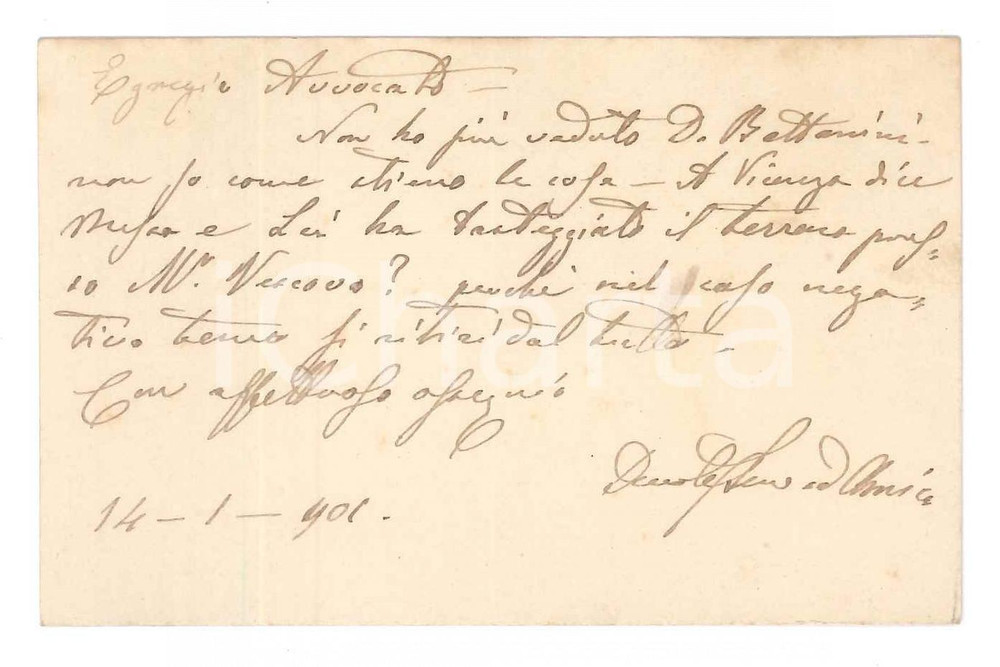 Egregio Avvocato —
Non ho più veduto D. Bettanini -
non so come stieno le cose — A Vicenza dice
e Lei ha tasteggiato il terreno pres=
so Mr. Vescovo? perché nel caso nega=
tivo temo si ritiri dal tutto -
Con affettuoso ossequio
Devotissimo ed Amico
14 - 1 - 901.
iCharta